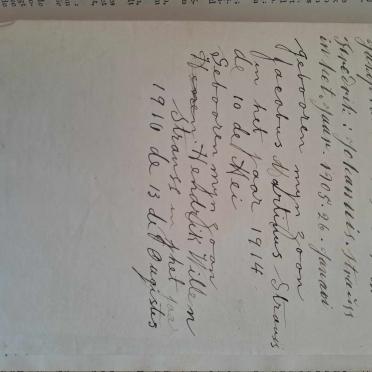 Fredrik: Johannis. Strauss
in het. Jaar. 1905. 26. Janari
Gebooren myn zoon
Jacobus Martinus Strauss
in het jaar 1914
de 10 de Mei
Gebooren myn zoon
Hendrik Willem
Strauss in het jaar
1910 de 13 de Augustus